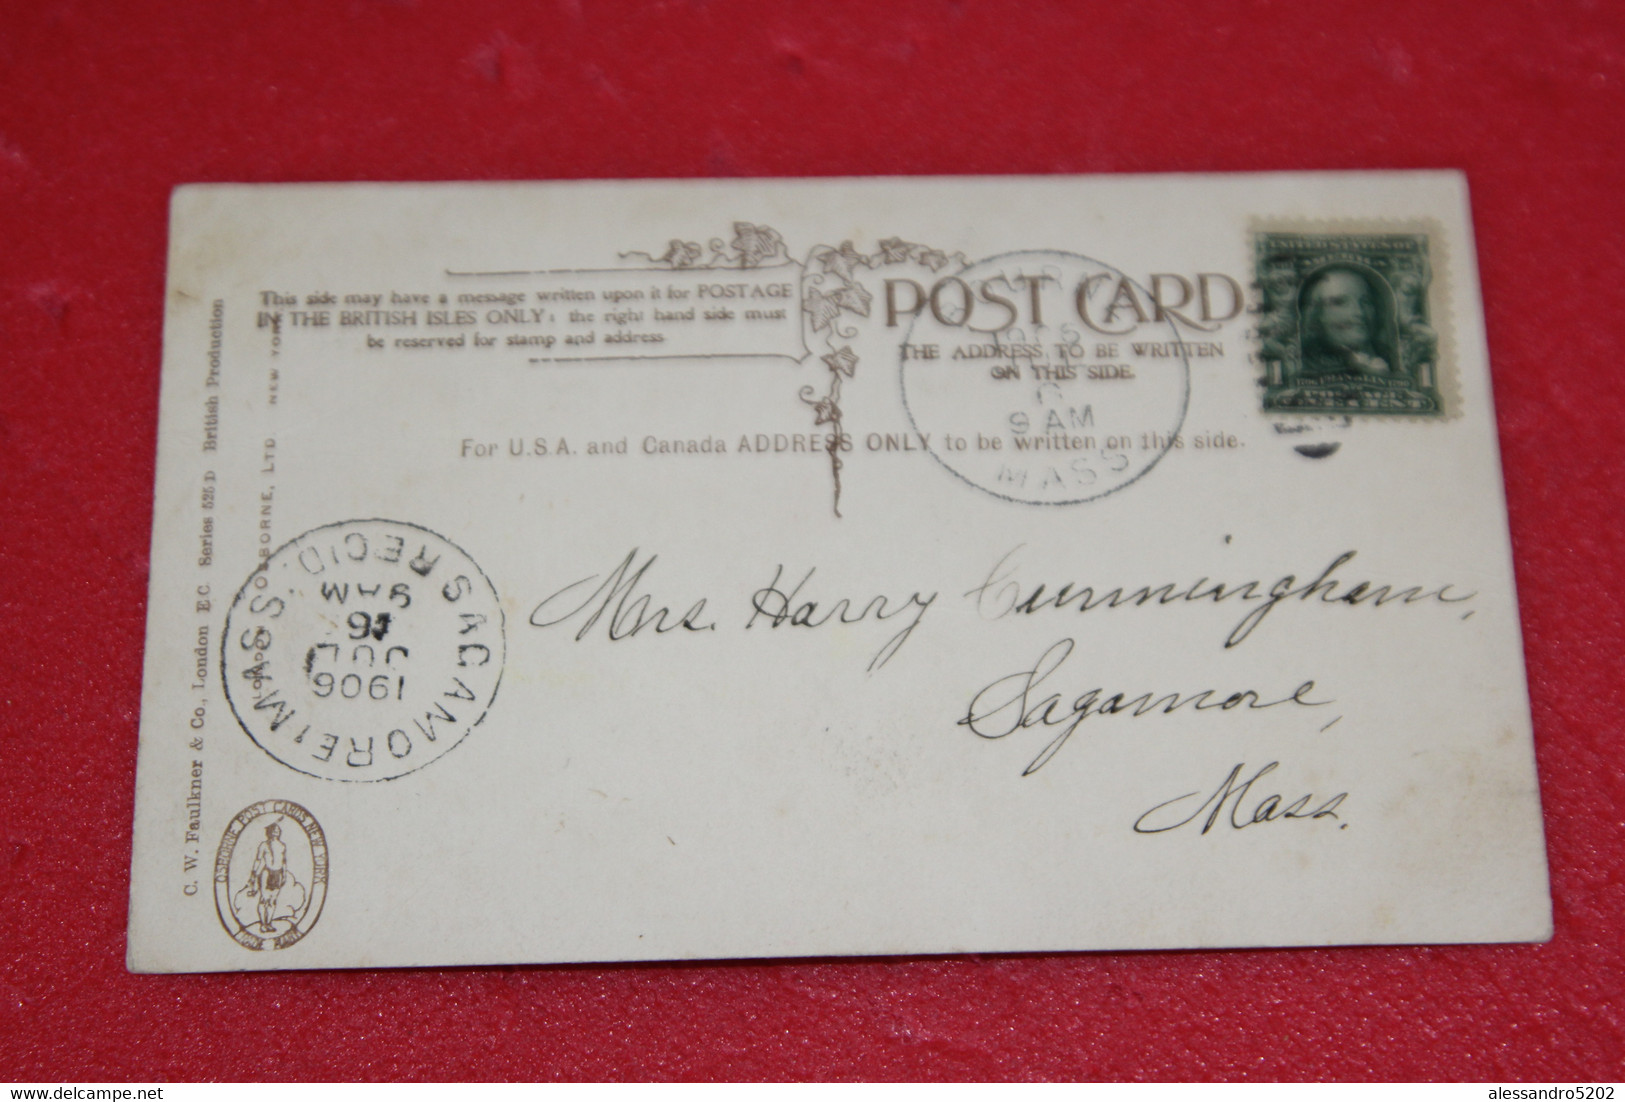 This side may have a message written upon it for POSTAGE
IN THE BRITISH ISLES ONLY: the right hand side must
be reserved for stamp and address
POST CARD
THE ADDRESS TO BE WRITTEN
ON THIS SIDE.
For U.S.A. and Canada ADDRESS ONLY to be written on this side.
9 AM
MASS
UNITED STATES OF
AMERICA
1 FRANKLIN 1
POSTAGE
ONE CENT
Mrs. Harry Cunningham,
Sagamore,
Mass.
SAGAMORE, MASS. REC'D.
1906
JUL
16
9 AM
C. W. Faulkner & Co., London E.C. Series 525 D British Production
LONDON OSBORNE, LTD. NEW YORK
OSBORNE POST CARDS NEW YORK
TRADE MARK
Delcampe.net
alessandro5202